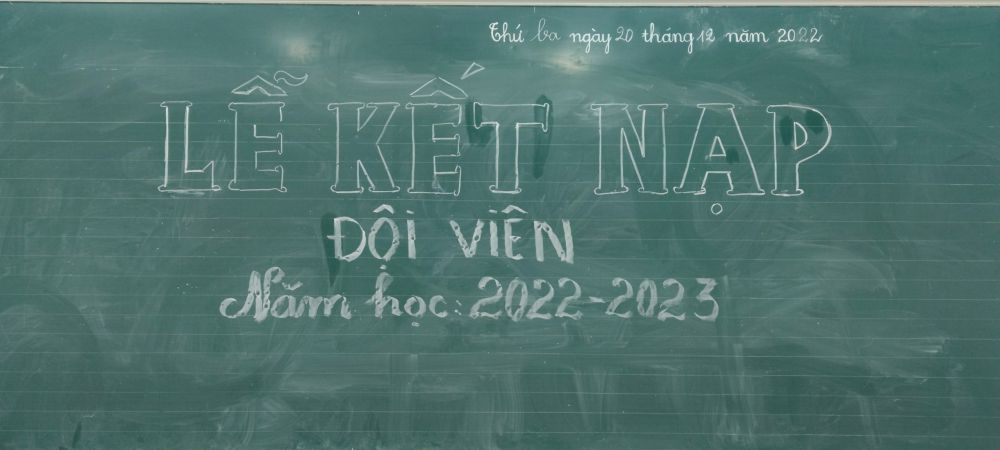 Thứ ba ngày 20 tháng 12 năm 2022
LỄ KẾT NẠP
ĐỘI VIÊN
Năm học: 2022-2023